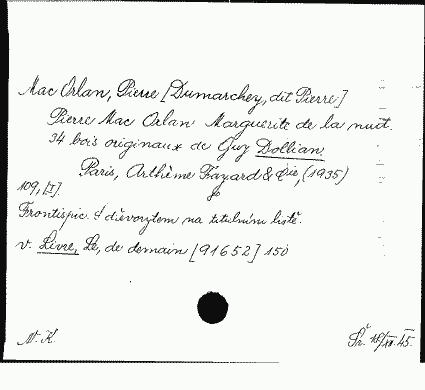 Mac Orlan, Pierre [Dumarchey, dit Pierre]
Pierre Mac Orlan Marguerite de la nuit.
34 bois originaux de Guy Dollian
Paris, Arthème Fayard & Cie, (1935)
109, [I]
Frontispic. s dřevorytem na titulním listě.
v. Livre, Le, de demain [91652] 150
N. K.
Př. 18/XII.45.